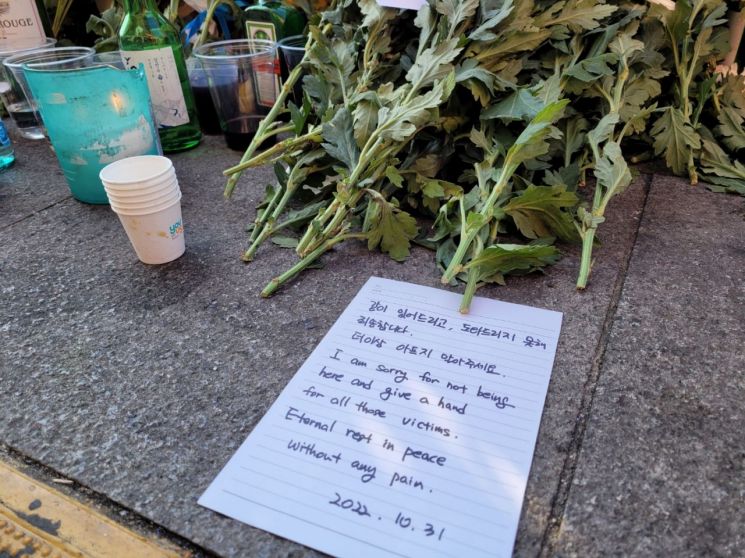 ROUGE
같이 있어드리고, 도와드리지 못해
죄송합니다.
더이상 아프지 말아주세요.
I am sorry for not being
here and give a hand
for all those victims.
Eternal rest in peace
without any pain.
2022. 10. 31